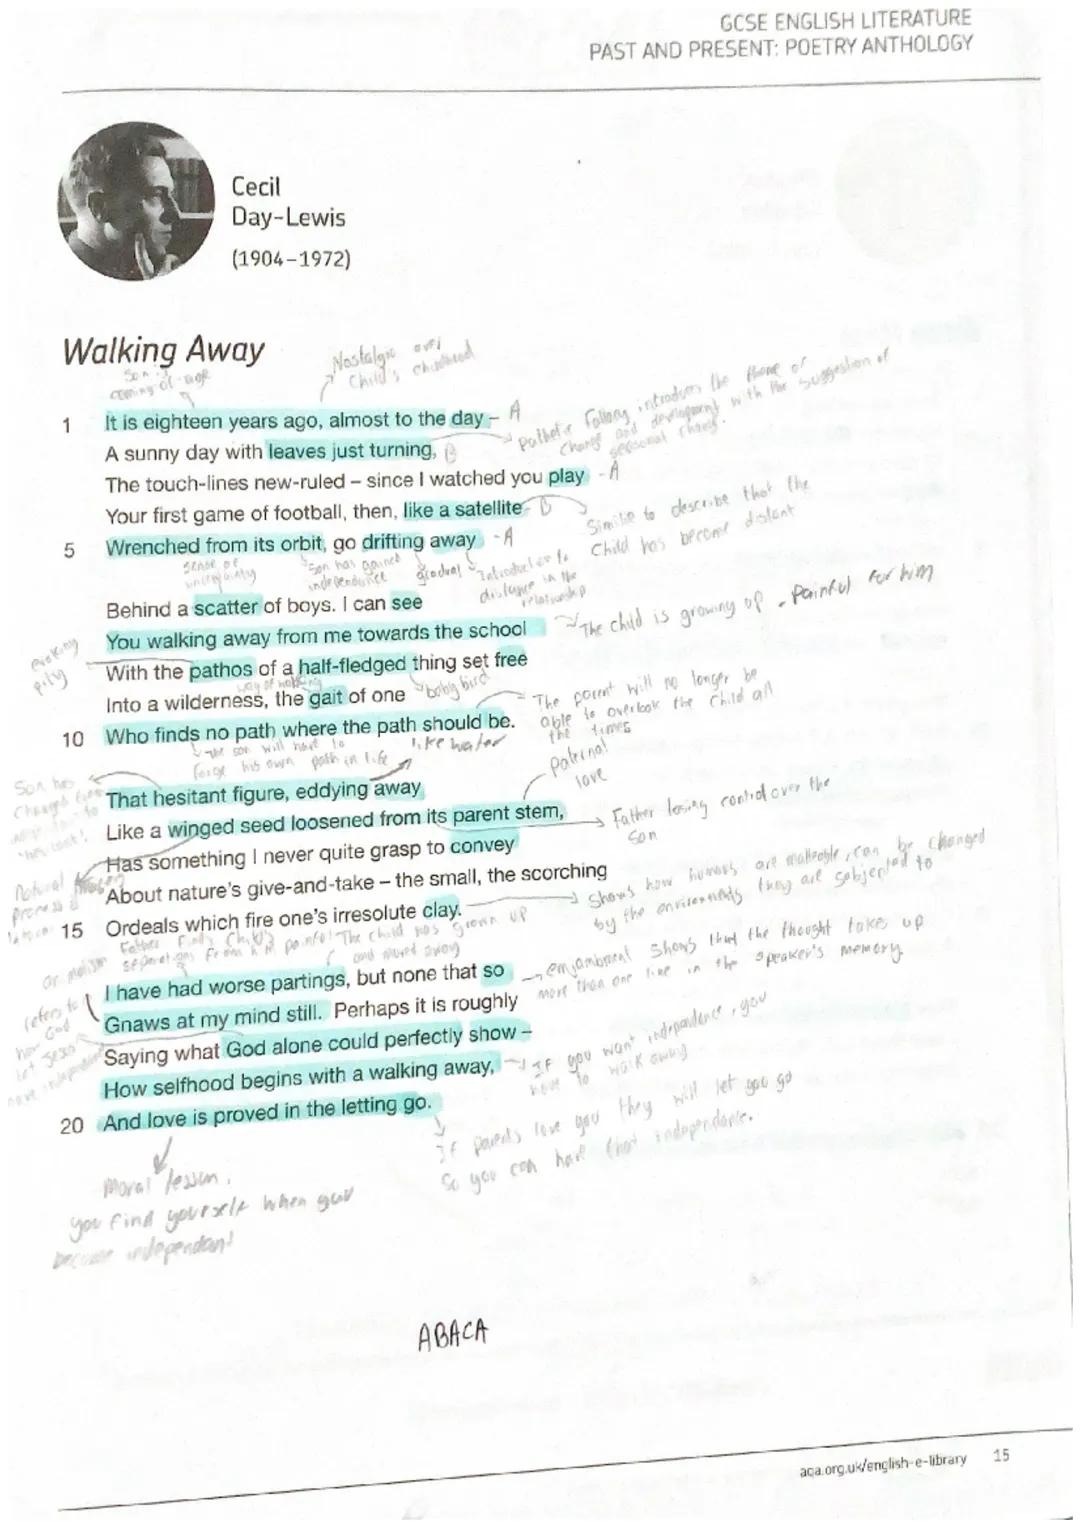 GCSE ENGLISH LITERATURE
PAST AND PRESENT: POETRY ANTHOLOGY
Cecil
Day-Lewis
(1904–1972)
Walking Away
Son is
coming-of-age
Nostalgic over
Child's childhood
1 It is eighteen years ago, almost to the day – A
Pathetic Fallacy introduces the theme of
change and development with the suggestion of
seasonal change.
A sunny day with leaves just turning, B
The touch-lines new-ruled – since I watched you play - A
Your first game of football, then, like a satellite - B
Simile to describe that the
Child has become distant
5 Wrenched from its orbit, go drifting away - A
sense of
uncertainty
Son has gained
independence
gradual
Introduction to
distance in the
relationship
Behind a scatter of boys. I can see
You walking away from me towards the school
The child is growing up - Painful for him
evoking
pity
With the pathos of a half-fledged thing set free
way of walking
baby bird
Into a wilderness, the gait of one
10 Who finds no path where the path should be.
The parent will no longer be
able to overlook the child all
the times
The son will have to
forge his own path in life
like water
Paternal
love
Son has
changed
That hesitant figure, eddying away
Like a winged seed loosened from its parent stem,
Father losing control over the
Son
Has something I never quite grasp to convey
Natural
process
About nature's give-and-take – the small, the scorching
15 Ordeals which fire one's irresolute clay.
Shows how humans are malleable, can be changed
by the environments they are subjected to
Father finds Child's
separation from him painful
The child has grown up
and moved away
I have had worse partings, but none that so
enjambment shows that the thought takes up
more than one line in the speaker's memory
Gnaws at my mind still. Perhaps it is roughly
refers to
how God
let Jesus
have independence
Saying what God alone could perfectly show –
How selfhood begins with a walking away,
If you want independence, you
have to walk away
20 And love is proved in the letting go.
If parents love you they will let you go
So you can have that independance.
Moral lesson,
you find yourself when you
become independant!
ABACA
aqa.org.uk/english-e-library 15